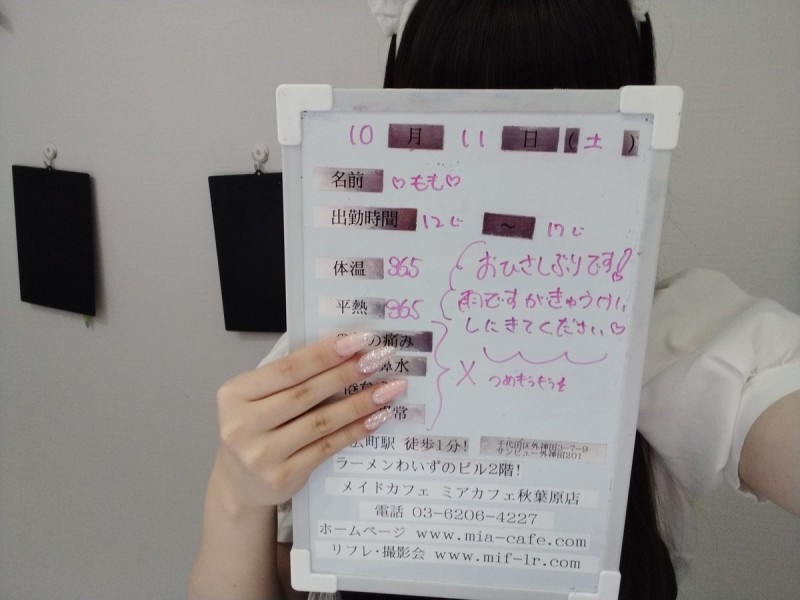 10 月 11 日 (土)
名前 ♡もも♡
出勤時間 12じ ～ 17じ
体温 365
平熱 365
おひさしぶりです!
雨ですがきゅうけい
しにきてください♡
の痛み
鼻水
常
×
町駅 徒歩1分!
千代田区外神田3-7-9
サンビュー外神田201
ラーメンわいずのビル2階!
メイドカフェ ミアカフェ秋葉原店
電話 03-6206-4227
ホームページ www.mia-cafe.com
リフレ・撮影会 www.mif-lr.com